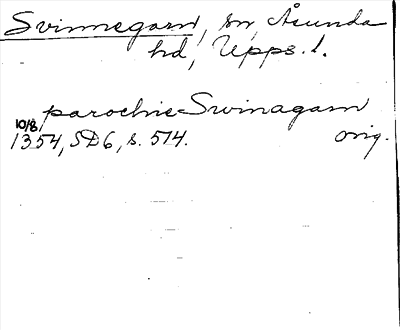 Svinnegarn, sn, Åsunda
hd, Upps. l.
parochie Swinagarn
10/8
1354, SD 6, s. 574. orig.